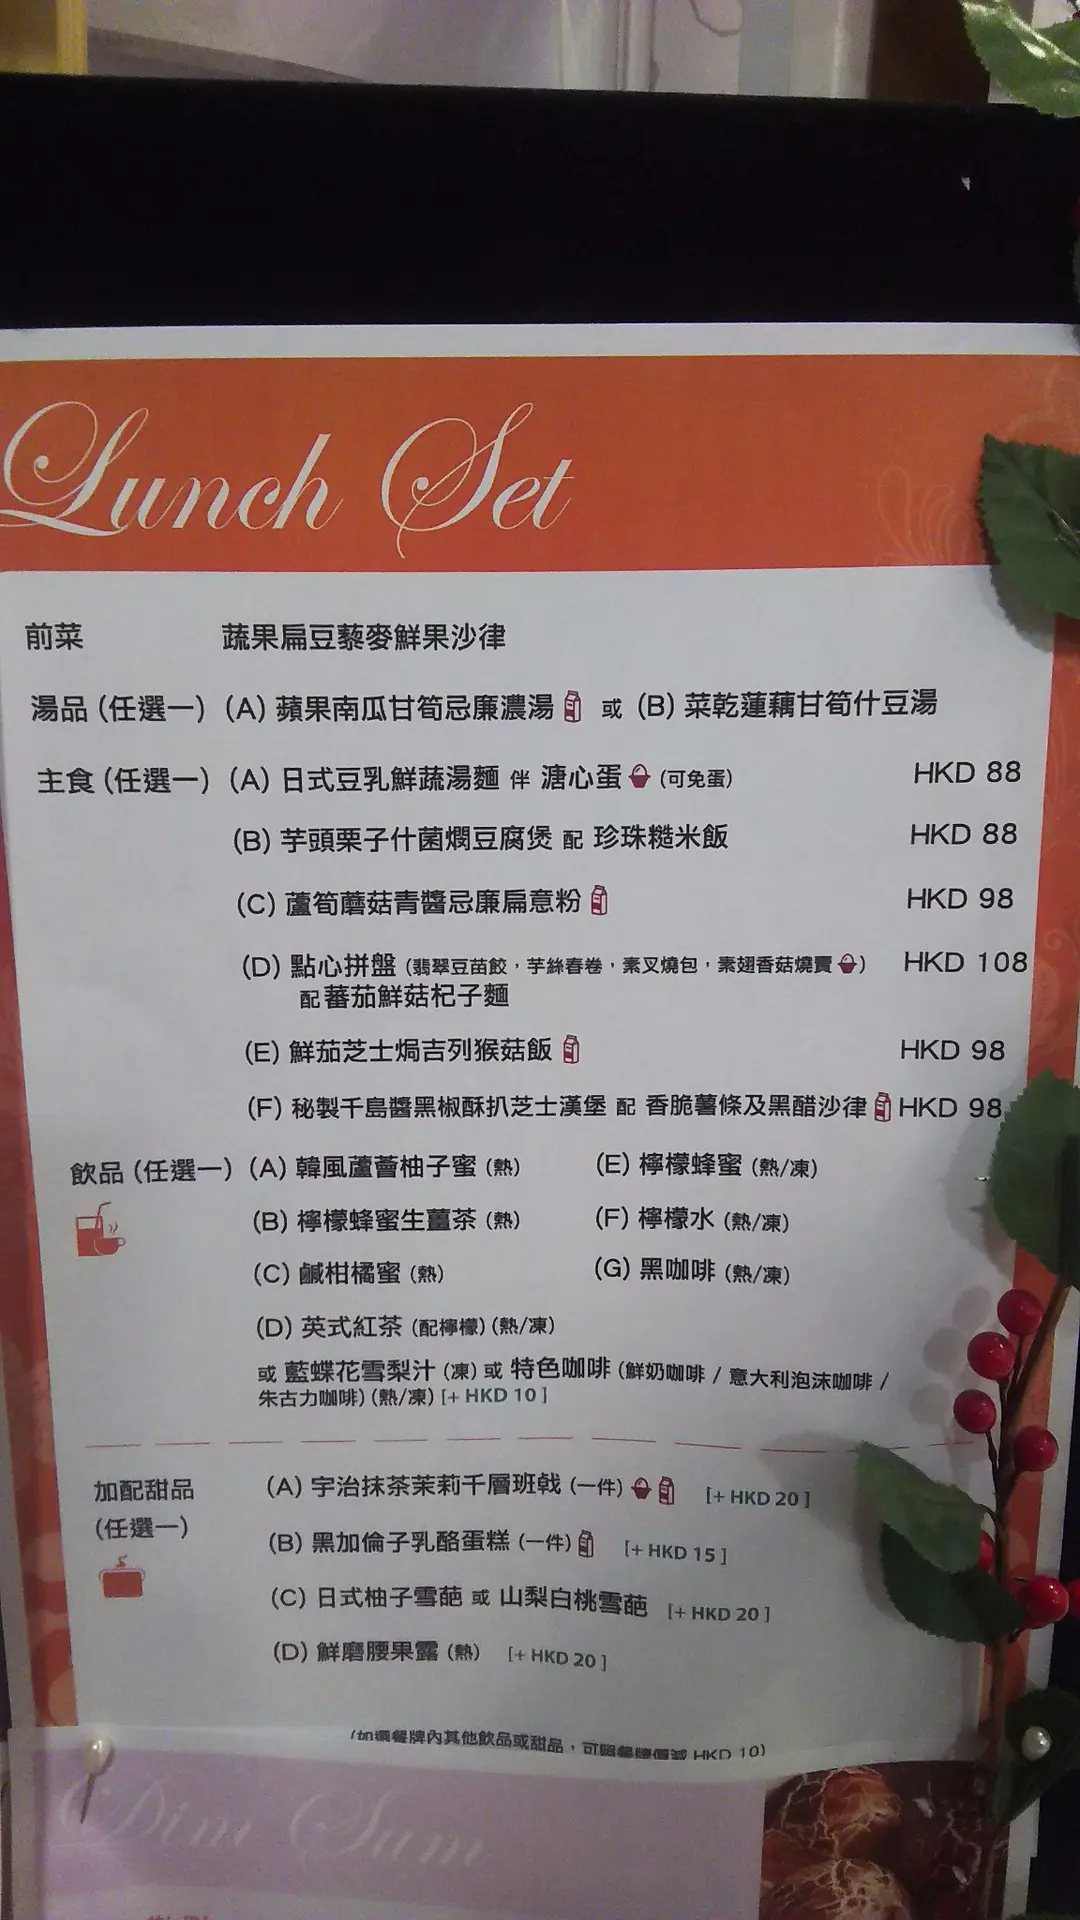 Lunch Set
前菜 蔬果扁豆藜麥鮮果沙律
湯品 (任選一) (A) 蘋果南瓜甘筍忌廉濃湯 或 (B) 菜乾蓮藕甘筍什豆湯
主食 (任選一) (A) 日式豆乳鮮蔬湯麵 伴 溏心蛋 (可免蛋) HKD 88
(B) 芋頭栗子什菌燜豆腐煲 配 珍珠糙米飯 HKD 88
(C) 蘆筍蘑菇青醬忌廉扁意粉 HKD 98
(D) 點心拼盤 (翡翠豆苗餃，芋絲春卷，素叉燒包，素翅香菇燒賣) HKD 108
配蕃茄鮮菇杞子麵
(E) 鮮茄芝士焗吉列猴菇飯 HKD 98
(F) 秘製千島醬黑椒酥扒芝士漢堡 配 香脆薯條及黑醋沙律 HKD 98
飲品 (任選一) (A) 韓風蘆薈柚子蜜 (熱) (E) 檸檬蜂蜜 (熱/凍)
(B) 檸檬蜂蜜生薑茶 (熱) (F) 檸檬水 (熱/凍)
(C) 鹹柑橘蜜 (熱) (G) 黑咖啡 (熱/凍)
(D) 英式紅茶 (配檸檬) (熱/凍)
或 藍蝶花雪梨汁 (凍) 或 特色咖啡 (鮮奶咖啡 / 意大利泡沫咖啡 /
朱古力咖啡) (熱/凍) [+ HKD 10 ]
加配甜品 (A) 宇治抹茶茉莉千層班戟 (一件) [+ HKD 20 ]
(任選一)
(B) 黑加倫子乳酪蛋糕 (一件) [+ HKD 15 ]
(C) 日式柚子雪葩 或 山梨白桃雪葩 [+ HKD 20 ]
(D) 鮮磨腰果露 (熱) [+ HKD 20 ]
(如選餐牌內其他飲品或甜品，可照餐牌價減 HKD 10)
Dim Sum